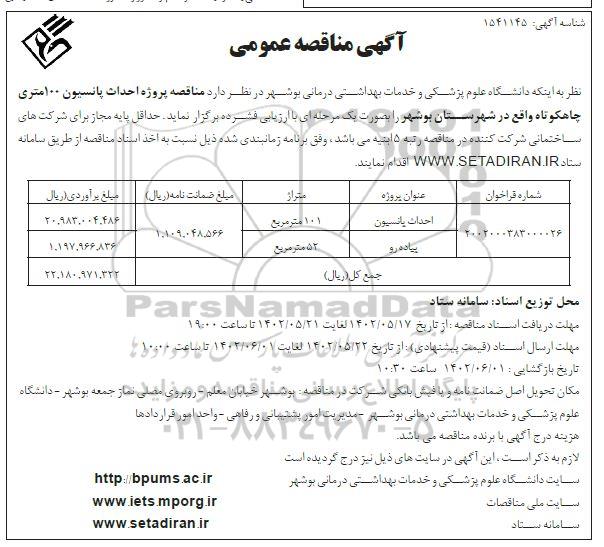 شناسه آگهی: ۱۵۴۱۱۴۵
آگهی مناقصه عمومی
نظر به اینکه دانشگاه علوم پزشکی و خدمات بهداشتی درمانی بوشهر در نظر دارد مناقصه پروژه احداث پانسیون ۱۰۰متری
چاهکوتاه واقع در شهرستان بوشهر را بصورت یک مرحله ای با ارزیابی فشرده برگزار نماید. حداقل پایه مجاز برای شرکت های
ساختمانی شرکت کننده در مناقصه رتبه ۵ ابنیه می باشد ، وفق برنامه زمانبندی شده ذیل نسبت به اخذ اسناد مناقصه از طریق سامانه
ستاد WWW.SETADIRAN.IR اقدام نمایند.
شماره فراخوان عنوان پروژه متراژ مبلغ ضمانت نامه(ریال) مبلغ برآوردی(ریال)
۲۰۰۲۰۰۰۳۸۳۰۰۰۰۲۶ احداث پانسیون ۱۰۱ مترمربع ۱.۱۰۹.۰۴۸.۵۶۶ ۲۰.۹۸۳.۰۰۴.۴۸۶
پیاده رو ۵۲مترمربع ۱.۱۹۷.۹۶۶.۸۳۶
جمع کل(ریال) ۲۲.۱۸۰.۹۷۱.۳۲۲
محل توزیع اسناد: سامانه ستاد
مهلت دریافت اسناد مناقصه : از تاریخ ۱۴۰۲/۰۵/۱۷ لغایت ۱۴۰۲/۰۵/۲۱ تا ساعت ۱۹:۰۰
مهلت ارسال اسناد (قیمت پیشنهادی) : از تاریخ ۱۴۰۲/۰۵/۲۲ لغایت ۱۴۰۲/۰۶/۰۱ تا ساعت ۱۰:۰۰
تاریخ بازگشایی : ۱۴۰۲/۰۶/۰۱ ساعت ۱۰:۳۰
مکان تحویل اصل ضمانت نامه و یا فیش بانکی شرکت در مناقصه : بوشهر خیابان معلم - روبروی مصلی نماز جمعه بوشهر - دانشگاه
علوم پزشکی و خدمات بهداشتی درمانی بوشهر - مدیریت امور پشتیبانی و رفاهی - واحد امور قراردادها
هزینه درج آگهی با برنده مناقصه می باشد.
لازم به ذکر است ، این آگهی در سایت های ذیل نیز درج گردیده است
سایت دانشگاه علوم پزشکی و خدمات بهداشتی درمانی بوشهر http://bpums.ac.ir
سایت ملی مناقصات www.iets.mporg.ir
سامانه ستاد www.setadiran.ir
ParsNamadData
۰۲۱-۸۸۳۴۹۶۷۰-۵